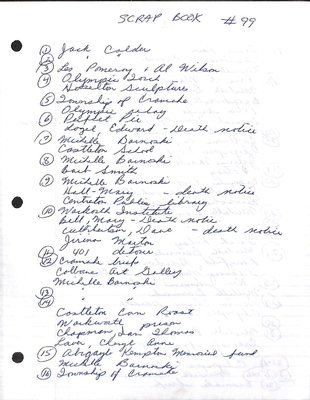 SCRAP BOOK #99
① Jack Calder
② " "
③ Les Pomeroy & Al Wilson
④ Olympic Torch
Hazelton Sculptures
⑤ Township of Cramahe
Olympic relay
⑥ Perfect Pie
Edward - Death notice
⑦ Michelle Barnoski
Castleton School
⑧ Michelle Barnoski
Bart Smith
⑨ Michelle Barnoski
Hall-Mary - death notice
Public library
⑩ Warkworth Institute
Bell, Mary - Death notice
Cuthbertson, Dave - death notice
Marton
⑪ 401 detour
⑫ Cramahe briefs
Colborne Art Gallery
Michelle Barnoski
⑬ " "
⑭
Castleton Corn Roast
Warkworth prison
Chapman, Ian Thomas
Cheryl Anne
⑮ Abigayle Kempton Memorial fund
Michelle Barnoski
⑯ Township of Cramahe